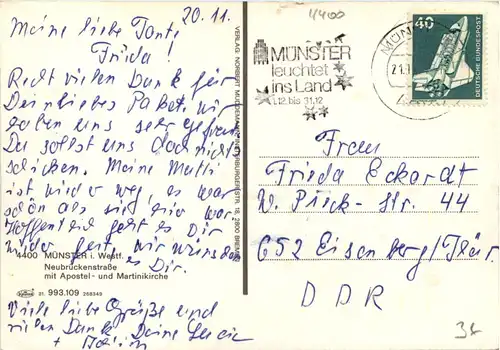 20.11.
Meine liebe Tante
Frida!
Recht vielen Dank für
Dein liebes Paket, wir
haben uns sehr gefreut.
Du sollst uns doch nichts
schicken. Meine Mutti
ist wieder weg, es war
schön als sie hier war.
Hoffentlich geht es Dir
wieder gut, wir wünschen
es Dir.
4400 MÜNSTER i. Westf.
Neubrückenstraße
mit Apostel- und Martinikirche
31. 993.109 268349
Viele liebe Grüße und
vielen Dank Deine
+
VERLAG NORBERT
4400
MÜNSTER
leuchtet
ins Land
1.12. bis 31.12
40
DEUTSCHE BUNDESPOST
Frau
Frieda Eckardt
W. Pieck-Str. 44
652 Eisenberg/Thür.
DDR